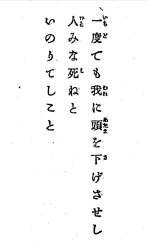 一度でも我に頭を下げさせし
人みな死ねと
いのりてしこと